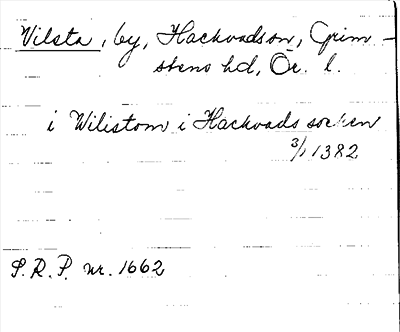 Vilsta, by, Hackvadsn, Grim-
stens hd, Ör. l.
i Wilistom i Hackvads socken
3/1 1382
S.R.P. nr. 1662